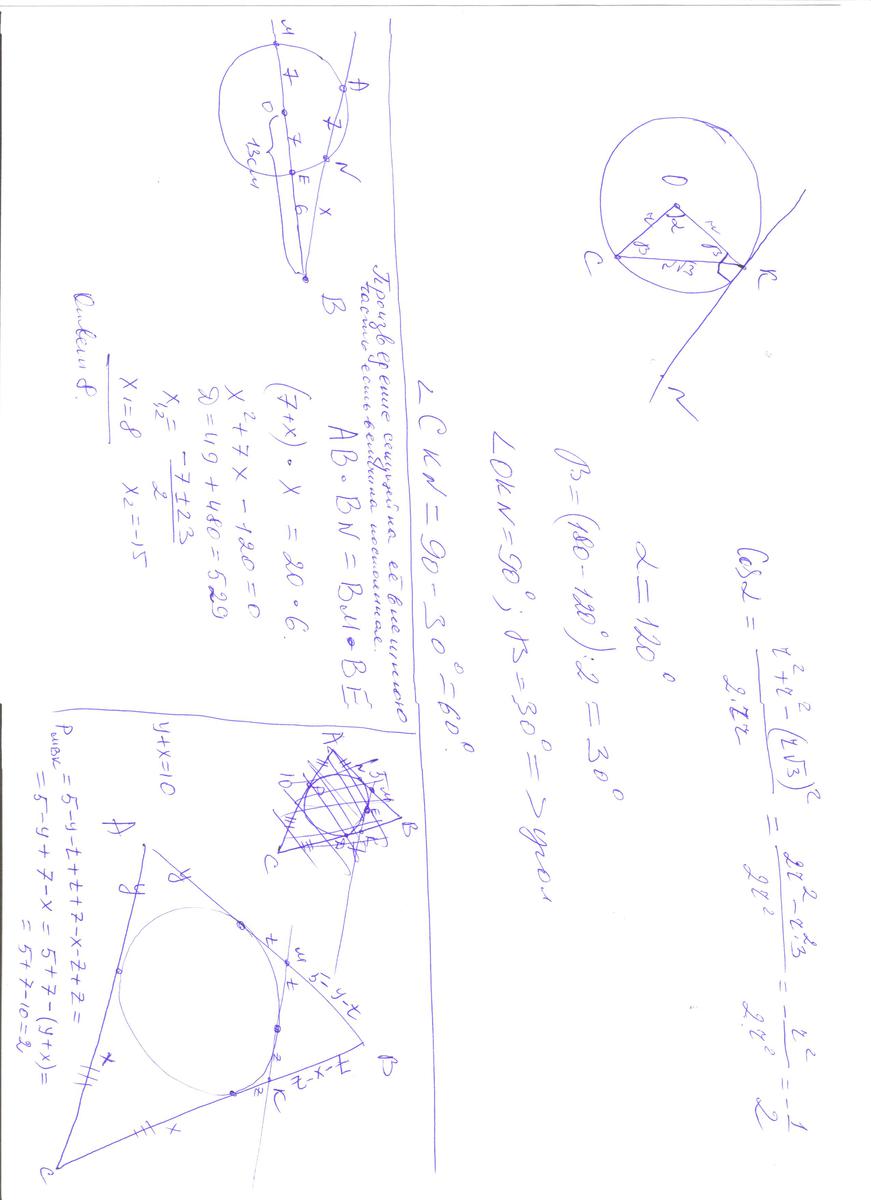 O
α
r
r
β
β
r√3
C
K
N
Cos α = r² + r² - (r√3)² / 2·r·r = 2r² - r²·3 / 2r² = - r² / 2r² = - 1 / 2
α = 120°
β = (180 - 120°) : 2 = 30°
∠OKN = 90°; β = 30° => угол
∠CKN = 90 - 30° = 60°.
M
7
O
7
E
6
A
7
N
x
B
13 см
Произведение секущей на её внешнюю
часть есть величина постоянная.
AB · BN = BM · BE
(7+x) · x = 20 · 6.
x² + 7x - 120 = 0
D = 49 + 480 = 529
x₁,₂ = -7 ± 23 / 2
x₁ = 8 x₂ = -15
Ответ 8.
A
B
C
M
5
10
y + x = 10
A
y
y
t
M
t
5-y-t
B
7-x-z
z
K
z
x
x
C
P мвк = 5-y-t+t+7-x-z+z =
= 5-y+7-x = 5+7-(y+x) =
= 5+7-10 = 2